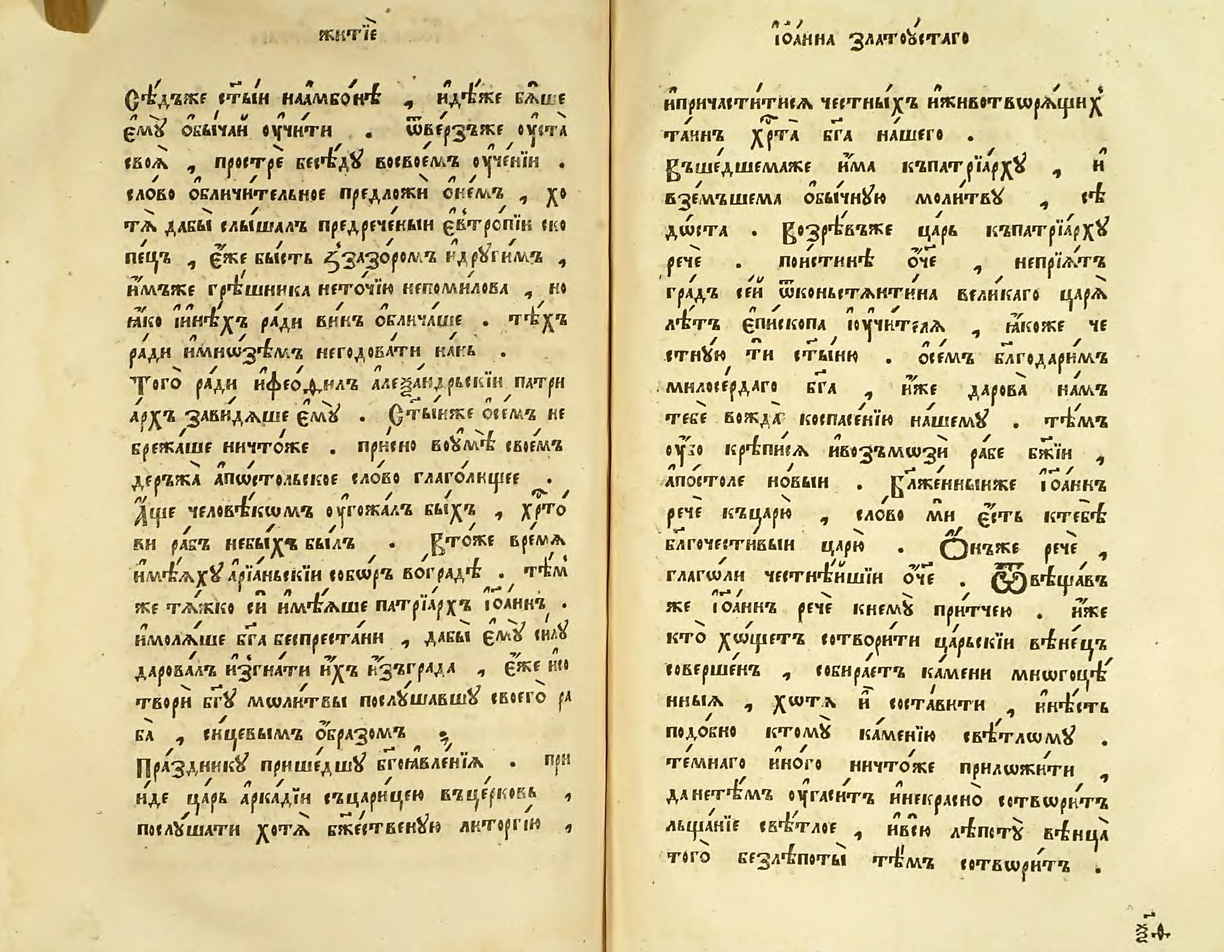 житїѐ
Сѣ́дъже ст҃ы́и наамбо́нѣ , идѣ́же бѧ́ше
е҆мꙋ̀ ѻ҆бы́чаи ᲂу҆чи́ти . ѿве́рзъже ᲂу҆ста̀
своѧ̀ , прострѐ бесѣ́дꙋ восвое́мъ ᲂу҆че́нїи .
сло́во ѻ҆бличи́тельное предложѝ ѻ҆не́мъ , хо
тѧ̀ дабы̀ слы́шалъ предрече́ныи е҆ѵтро́пїи ско
пе́цъ , е҆́же бы́сть ѕзазо́ромъ и҆дрꙋги́мъ ,
и҆́мъже грѣ́шника нето́чїю непоми́лова , но
ꙗ҆́ко и҆и҆нѣ́хъ ра́ди ви́нъ ѻ҆блича́ше . тѣ́хъ
ра́ди и҆мнѡ́зѣмъ негодова́ти на́нь .
Того̀ ра́ди и҆ѳео́филъ а҆леѯандрьскїи патри
а́рхъ зави́дѧше е҆мꙋ̀ . Ст҃ы́иже ѻ҆се́мъ не
брежа́ше ничто́же . при́сно воꙋмѣ̀ свое́мъ
держа̀ а҆пѡ́стольское сло́во глаго́лющее .
А҆́ще человѣ́кѡмъ ᲂу҆гожа́лъ бы́хъ , хрⷭ҇то́
ви ра́бъ небы́хъ бы́лъ . Вто́же вре́мѧ
и҆мѣ́ѧхꙋ а҆рїа́ньскїи собѡ́ръ вогра́дѣ . тѣ́м
же тѧ́жко сѝ и҆мѣ́ѧше патрїа́рхъ і҆ѡа́ннъ .
и҆молѧ́ше бг҃а беспреста́ни , дабы̀ е҆мꙋ̀ си́лꙋ
дарова́лъ и҆згна́ти и҆́хъ и҆зъгра́да , е҆́же и҆со
творѝ бг҃ꙋ мѡли́твы послꙋ́шавшꙋ своего̀ ра
ба̀ , си́цевымъ ѻ҆́бразомъ
Пра́здникꙋ прише́дшꙋ бг҃оꙗвле́нїѧ . при
и́де ца́рь а҆рка́дїи съцари́цею въце́рковь ,
послꙋ́шати хотѧ̀ бж҃е́ственꙋю литоргі́ю ,
і҆ѻ҆а́нна златоꙋ́стаго
и҆причасти́тисѧ честны́хъ и҆животвѡрѧ́щих
та́инъ хрⷭ҇та̀ бг҃а на́шего .
Въше́дшемаже и҆́ма къпатрїа́рхꙋ , и҆
взе́мъшема ѻ҆бы́чнꙋю моли́твꙋ , сѣ
дѡ́ста . Возрѣ́въже ца́рь къпатрїа́рхꙋ
речѐ . пои́стинѣ ѻ҆́ч҃е , непрїѧ́тъ
гра́дъ се́й ѿконьстѧнти́на вели́каго царѧ̀
лѣ́тъ е҆пи́скопа і҆ᲂу҆чи́телѧ , ꙗ҆́коже че
стнꙋ́ю тѝ ст҃ы́ню . ѻ҆се́мъ бл҃годари́мъ
милосе́рдаго бг҃а , и҆́же дарова̀ на́мъ
тебѐ вожда̀ коспасе́нїю на́шемꙋ . тѣ́мъ
ᲂу҆́бо крѣпи́сѧ и҆возъмѡзѝ ра́бе бж҃їи ,
а҆по́столе но́выи . Бл҃же́нныиже і҆ѡа́ннъ
речѐ къцарю̀ , сло́во мѝ е҆́сть ктебѣ̀
бл҃гочести́выи царю̀ . Ѻ҆́нъже речѐ ,
глагѡ́ли честнѣ́йшїи ѻ҆́ч҃е . Ѿвѣща́въ
же і҆ѡа́ннъ речѐ кнемꙋ̀ при́тчею . и҆́же
кто̀ хѡ́щетъ сотвори́ти ца́рьскїи вѣне́цъ
соверше́нъ , собира́етъ ка́мени мнѡгоцѣ́
нныѧ , хѡтѧ̀ и҆̀ соста́вити , и҆нѣ́сть
подо́бно ктомꙋ̀ ка́менїю свѣ́тлѡмꙋ .
те́мнаго и҆но́го ничто́же прилѡжи́ти ,
данетѣ́мъ ᲂу҆гаси́тъ и҆некра́сно сотвѡри́тъ
льща́нїе свѣ́тлое , и҆всю̀ лѣ́потꙋ вѣнца̀
того̀ безлѣ́поты тѣ́мъ сотвѡри́тъ .